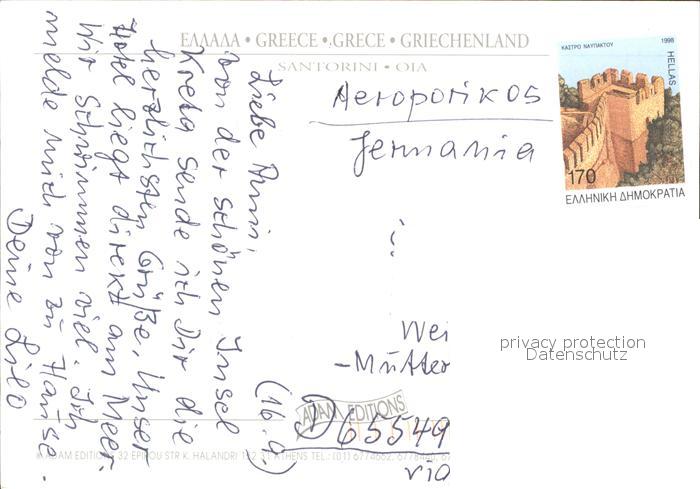 ΕΛΛΑΔΑ • GREECE • GRECE • GRIECHENLAND
SANTORINI • OIA
Liebe Anni,
von der schönen Insel
Kreta sende ich Dir die
herzlichsten Grüße. Unser
Hotel liegt direkt am Meer.
Wir schwimmen viel. Ich
melde mich von zu Hause.
Deine Lilo
(16.9.)
Aeroporikos
Germania
Wei
-Mutter
D 65549
via
ΚΑΣΤΡΟ ΝΑΥΠΑΚΤΟΥ
1998
HELLAS
170
ΕΛΛΗΝΙΚΗ ΔΗΜΟΚΡΑΤΙΑ
privacy protection
Datenschutz
ADAM EDITIONS
ADAM EDITIONS • 32 EPIROU STR K. HALANDRI 152 31 ATHENS TEL.: (01) 6774662, 6778440, 67